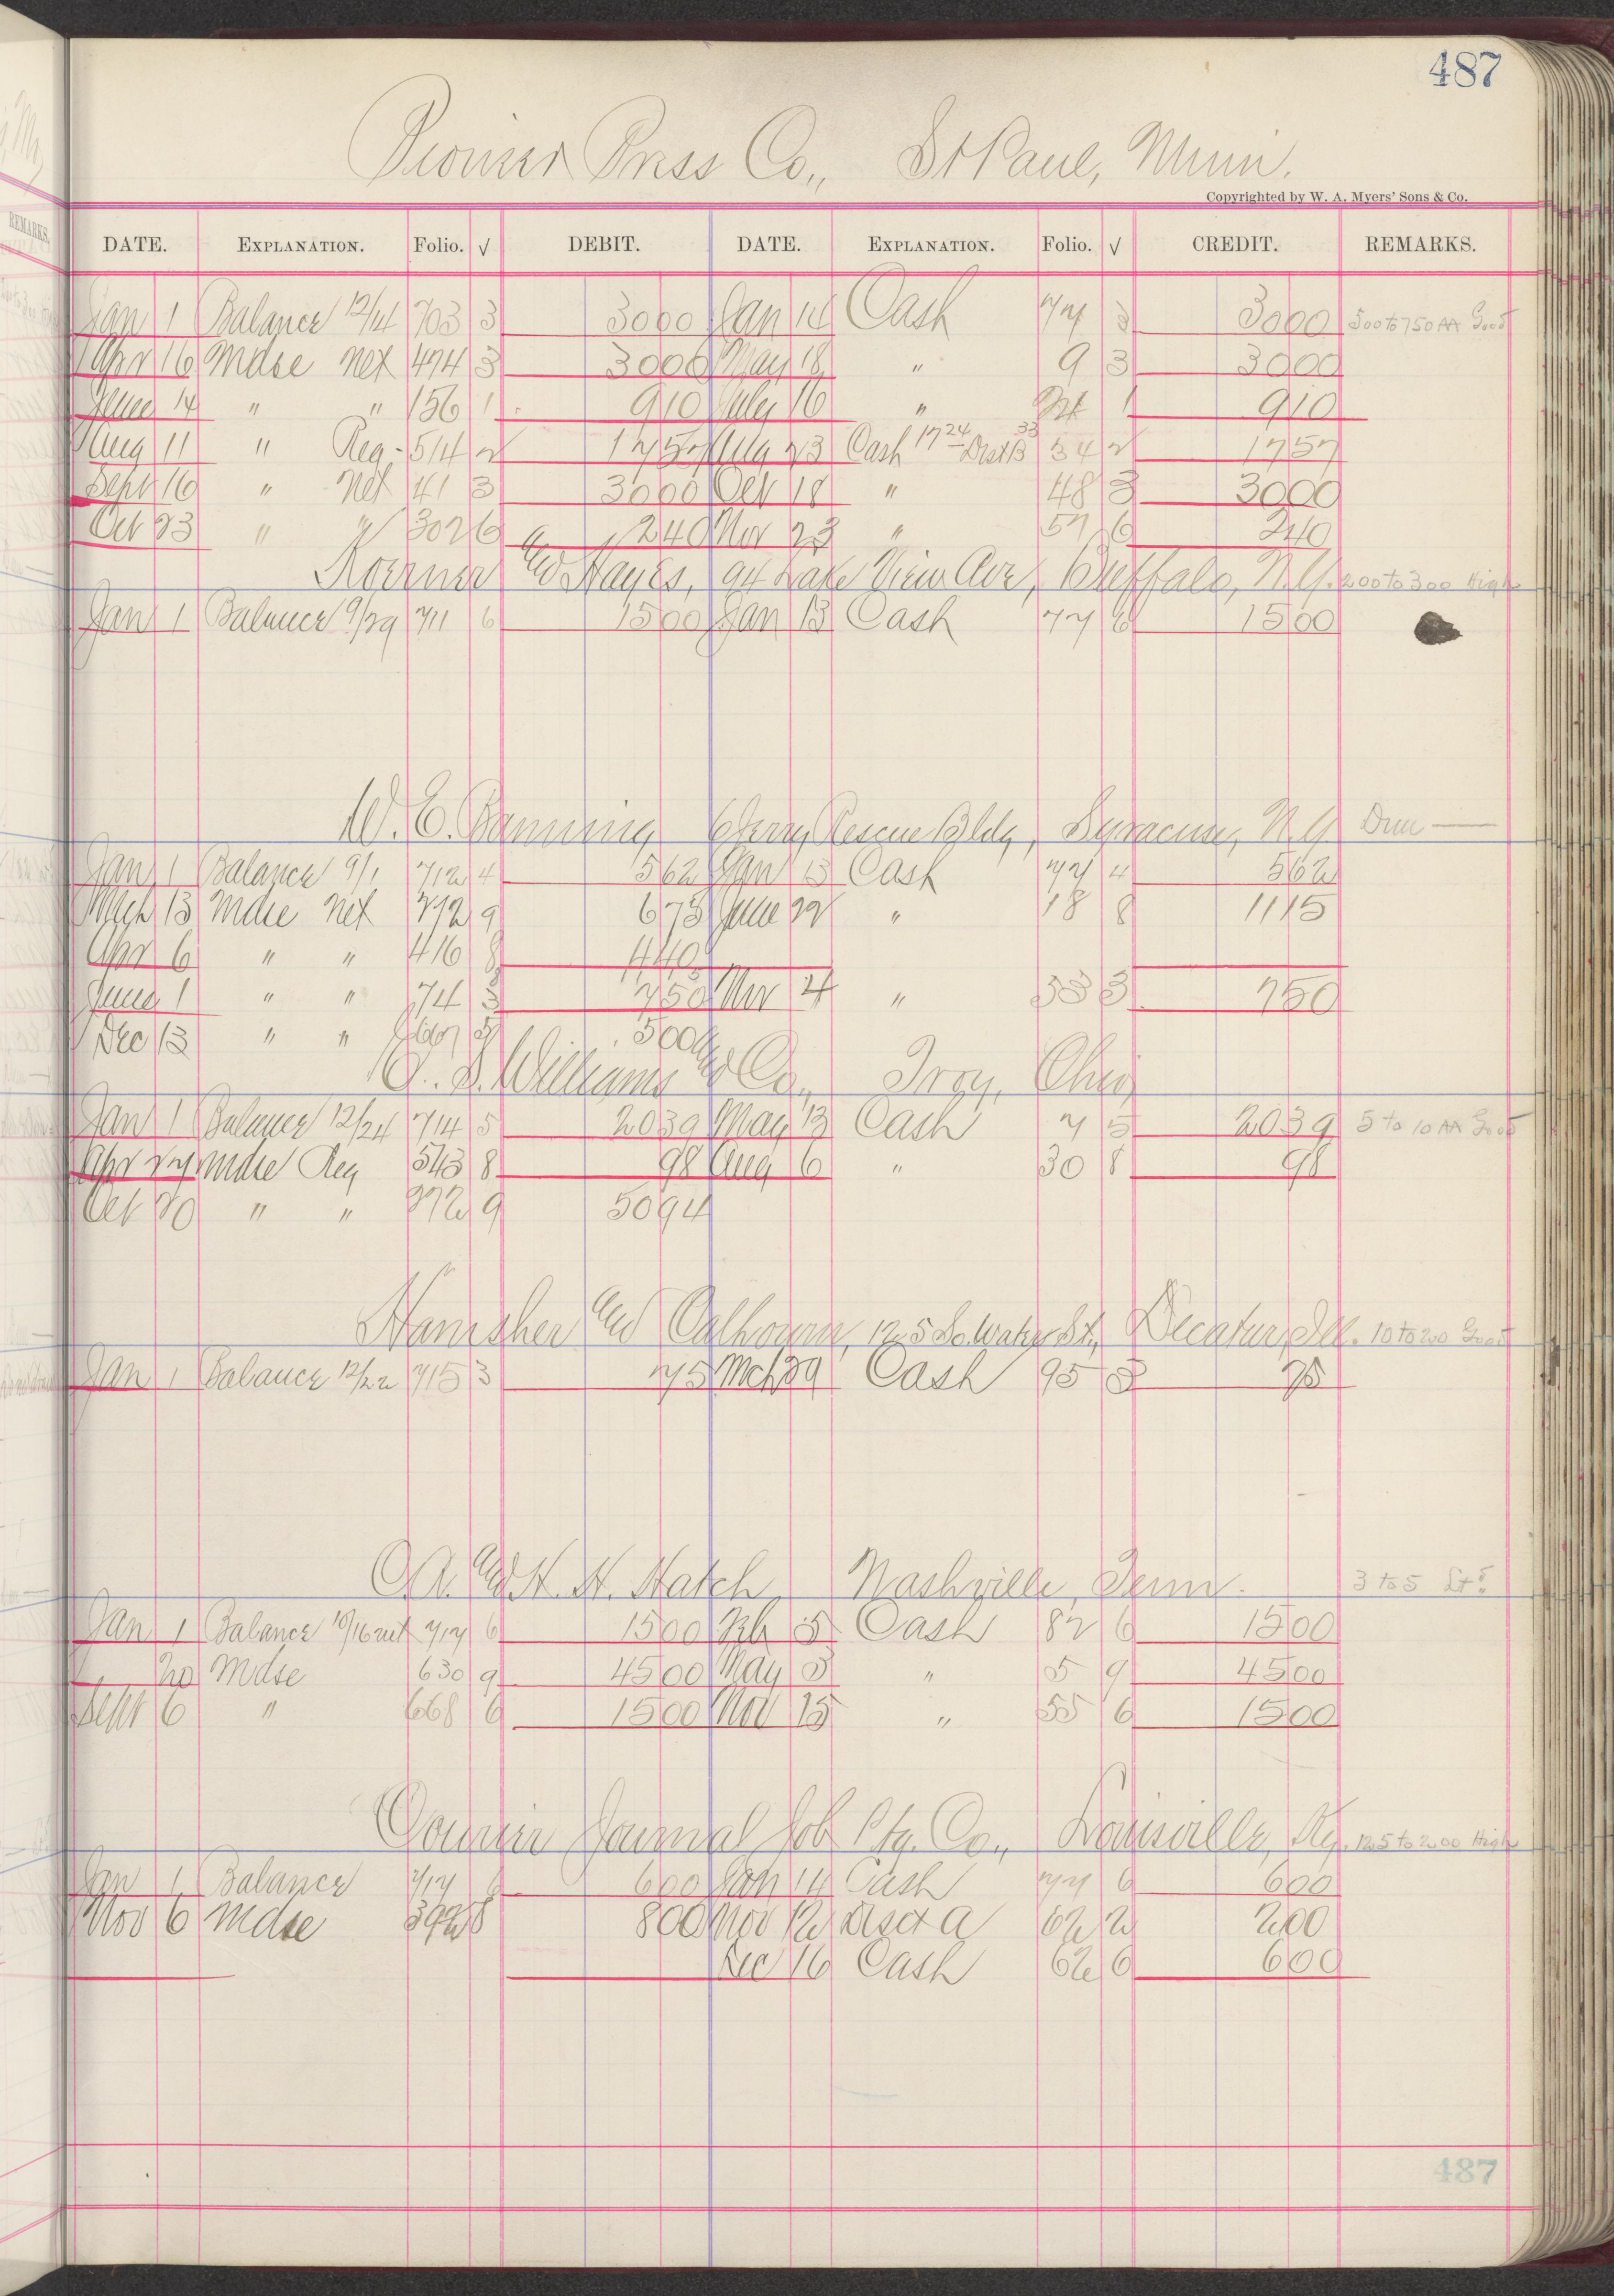 487
Pioneer Press Co., St Paul, Minn.
Copyrighted by W. A. Myers' Sons & Co.
DATE. EXPLANATION. Folio. √ DEBIT. DATE. EXPLANATION. Folio. √ CREDIT. REMARKS.
Jan 1 Balance 12/14 703 3 3000 Jan 14 Cash 77 3 3000 500 to 750 AA Good
Apr 16 Mdse Net 474 3 3000 May 18 " 9 3 3000
June 14 " " 156 1 910 July 16 " 24 1 910
Aug 11 " Reg - 514 2 1757 Aug 23 Cash 17 24 Disct B 33 34 2 1757
Sept 16 " Net 41 3 3000 Oct 18 " 48 3 3000
Oct 23 " " 302 6 240 Nov 23 " 57 6 240
Koerner and Hayes, 94 Lake View Ave, Buffalo, N.Y. 200 to 300 High
Jan 1 Balance 9/29 711 6 1500 Jan 13 Cash 77 6 1500
W. E. Banning 6 Jerry Rescue Bldg, Syracuse, N.Y.
Jan 1 Balance 9/1 712 4 562 Jan 13 Cash 77 4 562
Mch 13 Mdse Net 272 9 675 June 22 " 18 8 1115
Apr 6 " " 416 8 440
June 1 " " 74 3 750 Nov 4 " 53 3 750
Dec 13 " " 667 5 500
C. S. Williams and Co., Troy, Ohio
Jan 1 Balance 12/24 714 5 2039 May 13 Cash 7 5 2039 5 to 10 AA Good
Apr 27 Mdse Reg 543 8 98 Aug 6 " 30 8 98
Oct 20 " " 272 9 5094
Hamsher and Calhoun, 125 So. Water St., Decatur, Ill. 10 to 20 Good
Jan 1 Balance 12/22 715 3 75 Mch 29 Cash 95 3 75
C. A. and H. H. Hatch Nashville, Tenn. 3 to 5
Jan 1 Balance 10/16 net 717 6 1500 Feb 5 Cash 82 6 1500
20 Mdse 630 9 4500 May 3 " 5 9 4500
Sept 6 " 668 6 1500 Nov 15 " 55 6 1500
Courier Journal Job Ptg. Co., Louisville, Ky. 125 to 200 High
Jan 1 Balance 717 6 600 Jan 14 Cash 77 6 600
Nov 6 Mdse 392 8 800 Nov 12 Disct A 62 2 200
Dec 16 Cash 62 6 600
487